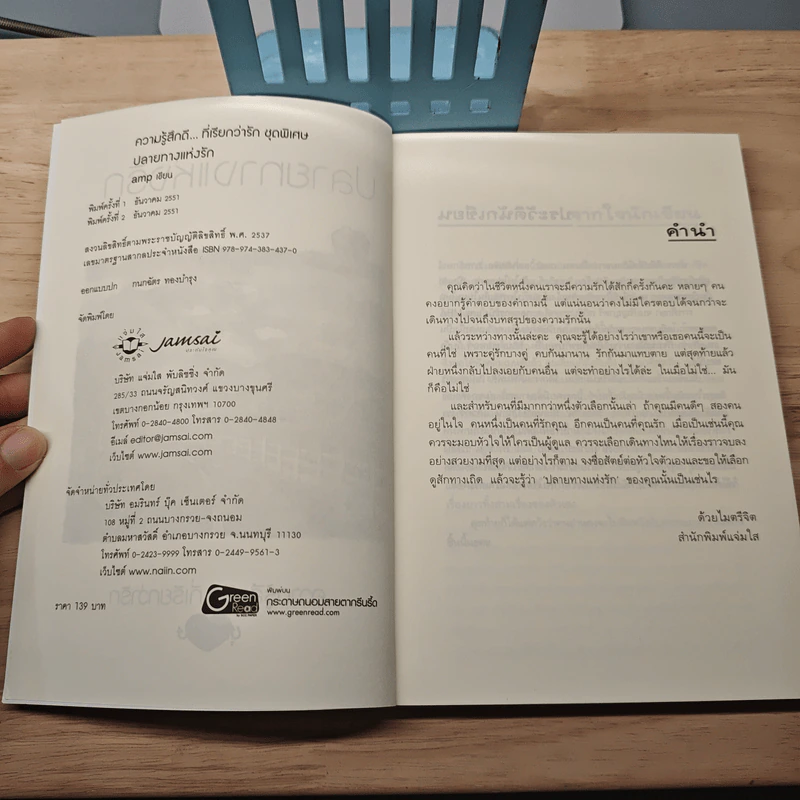 ความรู้สึกดี... ที่เรียกว่ารัก ชุดพิเศษ
ปลายทางแห่งรัก
amp เขียน
พิมพ์ครั้งที่ 1 ธันวาคม 2551
พิมพ์ครั้งที่ 2 ธันวาคม 2551
สงวนลิขสิทธิ์ตามพระราชบัญญัติลิขสิทธิ์ พ.ศ. 2537
เลขมาตรฐานสากลประจำหนังสือ ISBN 978-974-383-437-0
ออกแบบปก กนกฉัตร ทองบำรุง
จัดพิมพ์โดย
แจ่มใส
Jamsai
Jamsai
บริษัท แจ่มใส พับลิชชิ่ง จำกัด
285/33 ถนนจรัญสนิทวงศ์ แขวงบางขุนศรี
เขตบางกอกน้อย กรุงเทพฯ 10700
โทรศัพท์ 0-2840-4800 โทรสาร 0-2840-4848
อีเมล์ editor@jamsai.com
เว็บไซต์ www.jamsai.com
จัดจำหน่ายทั่วประเทศโดย
บริษัท อมรินทร์ บุ๊ค เซ็นเตอร์ จำกัด
108 หมู่ที่ 2 ถนนบางกรวย-จงถนอม
ตำบลมหาสวัสดิ์ อำเภอบางกรวย จ.นนทบุรี 11130
โทรศัพท์ 0-2423-9999 โทรสาร 0-2449-9561-3
เว็บไซต์ www.naiin.com
ราคา 139 บาท
Green Read
พิมพ์บน
กระดาษถนอมสายตากรีนรี้ด
www.greenread.com
คำนำ
คุณคิดว่าในชีวิตหนึ่งคนเราจะมีความรักได้สักกี่ครั้งกันคะ หลายๆ คน
คงอยากรู้คำตอบของคำถามนี้ แต่แน่นอนว่าคงไม่มีใครตอบได้จนกว่าจะ
เดินทางไปจนถึงบทสรุปของความรักนั้น
แล้วระหว่างทางนั้นล่ะคะ คุณจะรู้ได้อย่างไรว่าเขาหรือเธอคนนี้จะเป็น
คนที่ใช่ เพราะคู่รักบางคู่ คบกันมานาน รักกันมาแทบตาย แต่สุดท้ายแล้ว
ฝ่ายหนึ่งกลับไปลงเอยกับคนอื่น แต่จะทำอย่างไรได้ล่ะ ในเมื่อไม่ใช่... มัน
ก็คือไม่ใช่
และสำหรับคนที่มีมากกว่าหนึ่งตัวเลือกนั้นเล่า ถ้าคุณมีคนดีๆ สองคน
อยู่ในใจ คนหนึ่งเป็นคนที่รักคุณ อีกคนเป็นคนที่คุณรัก เมื่อเป็นเช่นนี้คุณ
ควรจะมอบหัวใจให้ใครเป็นผู้ดูแล ควรจะเลือกเดินทางไหนให้เรื่องราวจบลง
อย่างสวยงามที่สุด แต่อย่างไรก็ตาม จงซื่อสัตย์ต่อหัวใจตัวเองและขอให้เลือก
ดูสักทางเถิด แล้วจะรู้ว่า 'ปลายทางแห่งรัก' ของคุณนั้นเป็นเช่นไร
ด้วยไมตรีจิต
สำนักพิมพ์แจ่มใส